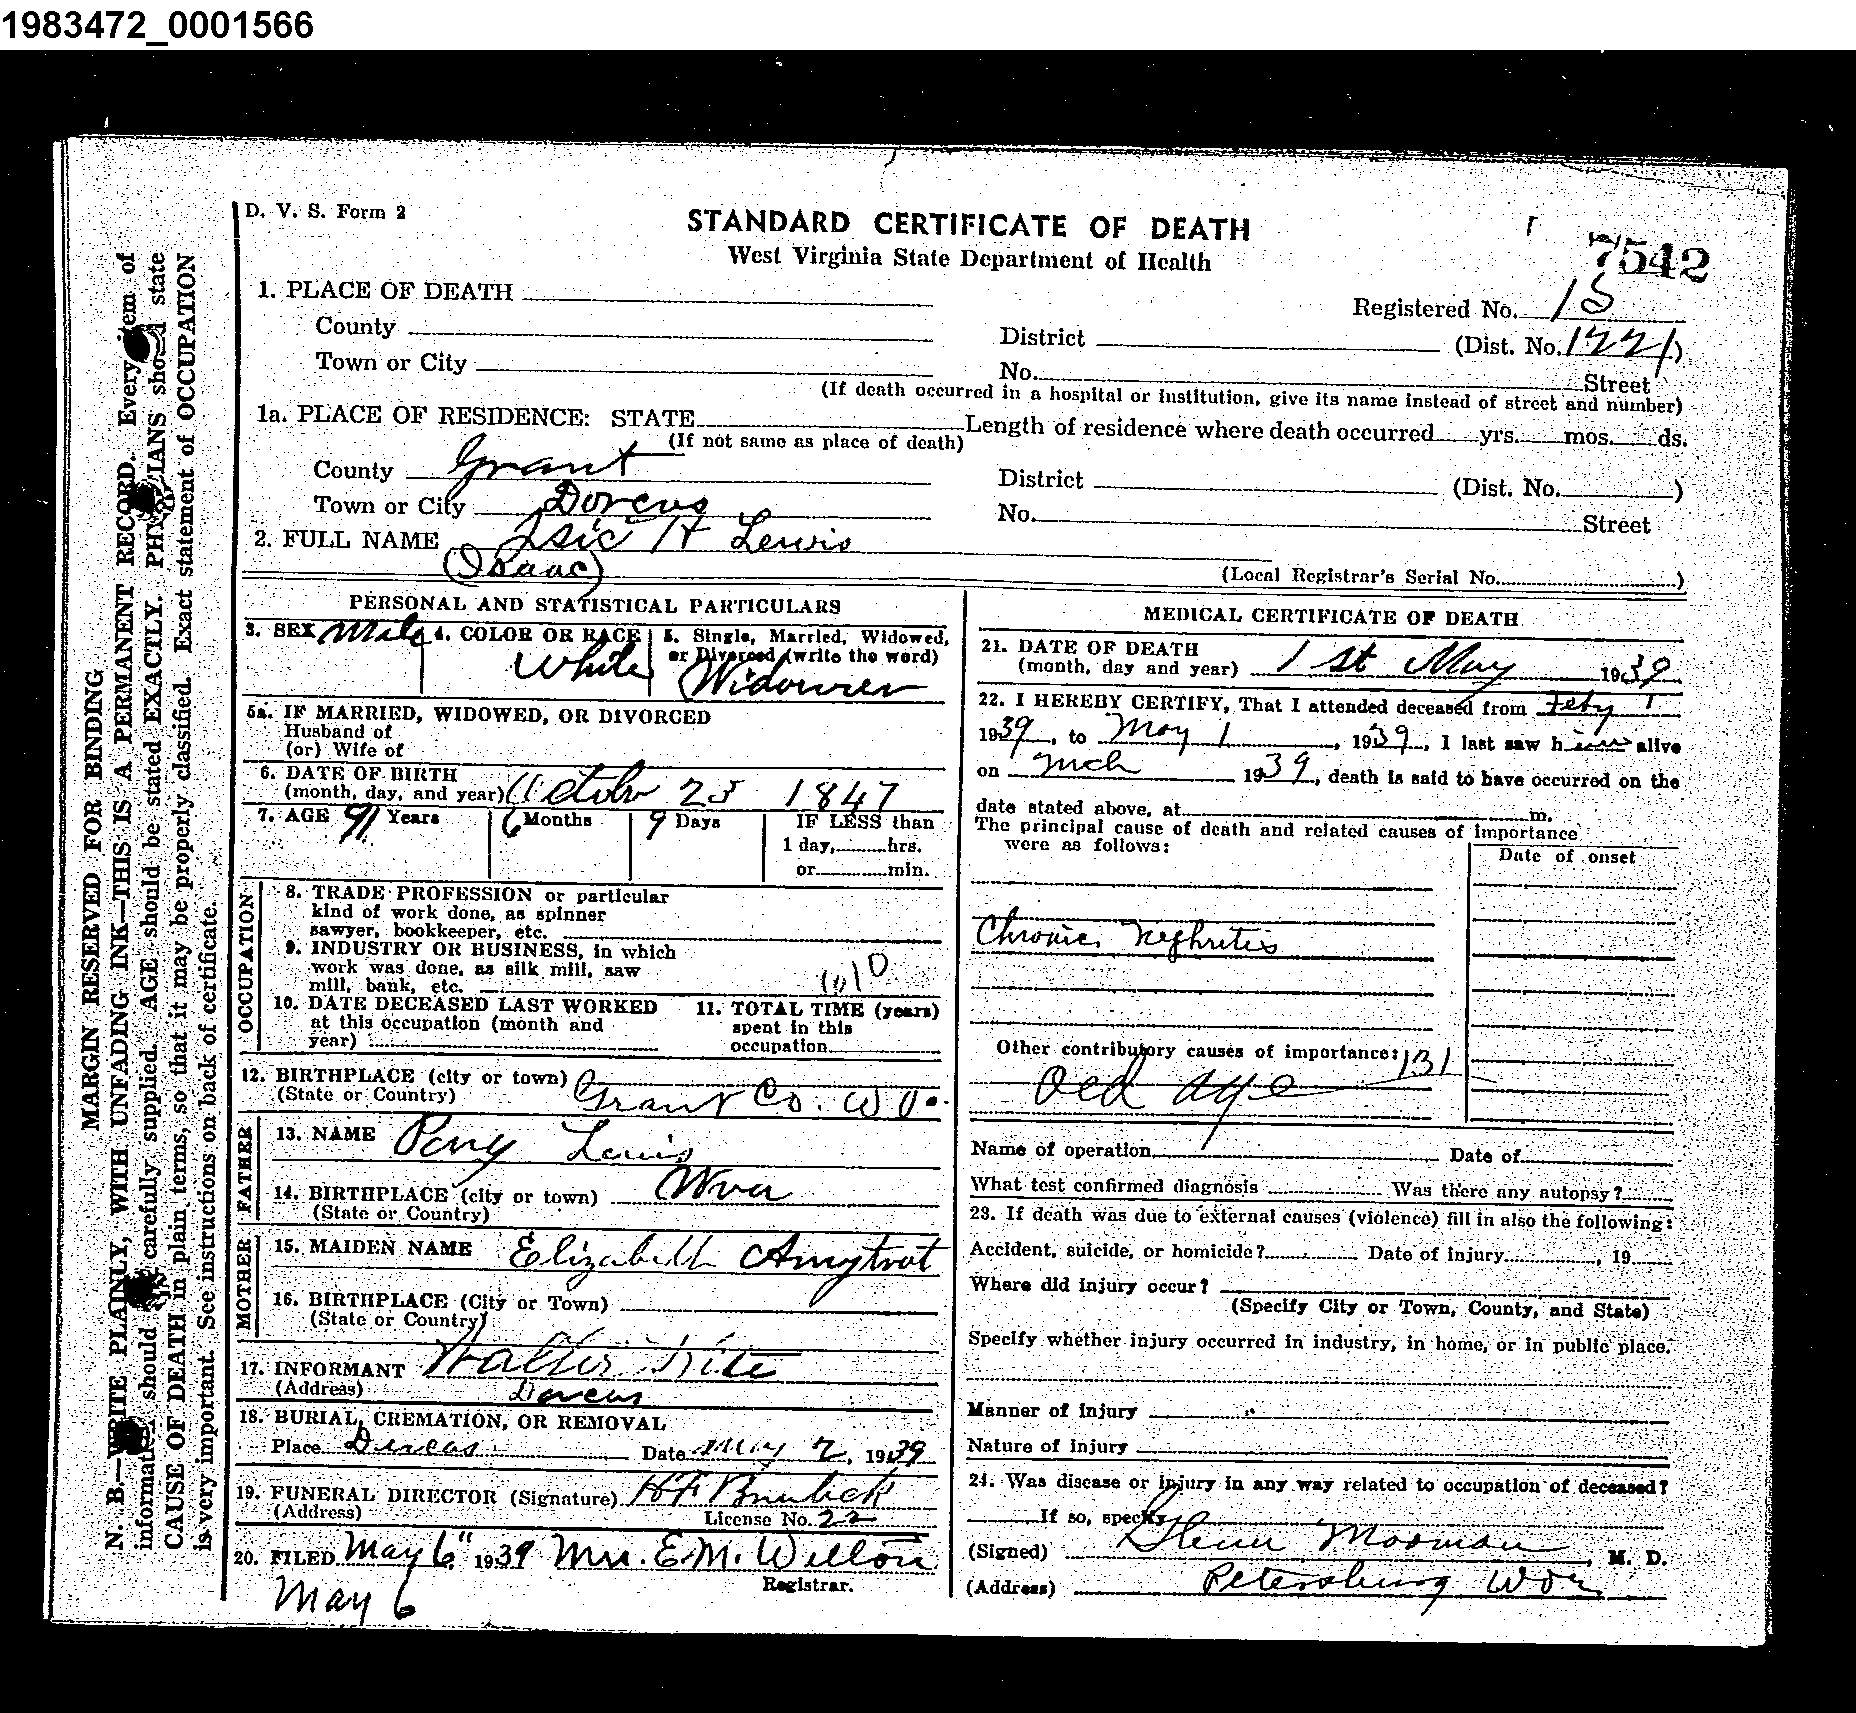 1983472_0001566
D. V. S. Form 2
STANDARD CERTIFICATE OF DEATH
West Virginia State Department of Health
7542
1. PLACE OF DEATH
Registered No. 15
County
District (Dist. No. 1221)
Town or City
No. Street
(If death occurred in a hospital or institution, give its name instead of street and number)
1a. PLACE OF RESIDENCE: STATE Length of residence where death occurred yrs. mos. ds.
(If not same as place of death)
County Grant
District (Dist. No. )
Town or City Dorcus
No. Street
2. FULL NAME Isic H Lewis
(Isaac)
(Local Registrar's Serial No. )
PERSONAL AND STATISTICAL PARTICULARS
3. SEX Male 4. COLOR OR RACE White 5. Single, Married, Widowed,
or Divorced (write the word)
Widower
5a. IF MARRIED, WIDOWED, OR DIVORCED
Husband of
(or) Wife of
6. DATE OF BIRTH
(month, day, and year) October 23 1847
7. AGE 91 Years 6 Months 9 Days IF LESS than
1 day, hrs.
or min.
OCCUPATION
8. TRADE PROFESSION or particular
kind of work done, as spinner
sawyer, bookkeeper, etc.
9. INDUSTRY OR BUSINESS, in which
work was done, as silk mill, saw
mill, bank, etc.
10. DATE DECEASED LAST WORKED
at this occupation (month and
year)
11. TOTAL TIME (years)
spent in this
occupation
12. BIRTHPLACE (city or town)
(State or Country) Grant Co. W Va.
FATHER
13. NAME Perry Lewis
14. BIRTHPLACE (city or town) Wva
(State or Country)
MOTHER
15. MAIDEN NAME Elizabeth Amytrot
16. BIRTHPLACE (City or Town)
(State or Country)
17. INFORMANT Walter Kite
(Address) Dorcus
18. BURIAL, CREMATION, OR REMOVAL
Place Dorcas Date May 2, 1939
19. FUNERAL DIRECTOR (Signature)
(Address) License No. 22
20. FILED May 6" 1939 Mrs. E. M. Welton
Registrar.
May 6
MEDICAL CERTIFICATE OF DEATH
21. DATE OF DEATH
(month, day and year) 1 st May 1939
22. I HEREBY CERTIFY, That I attended deceased from Feby 1
1939, to May 1, 1939, I last saw him alive
on Mch 1939, death is said to have occurred on the
date stated above, at m.
The principal cause of death and related causes of importance
were as follows:
Date of onset
Chronic Nephritis
Other contributory causes of importance: 131
Old age
Name of operation Date of
What test confirmed diagnosis Was there any autopsy?
23. If death was due to external causes (violence) fill in also the following:
Accident, suicide, or homicide? Date of injury , 19
Where did injury occur?
(Specify City or Town, County, and State)
Specify whether injury occurred in industry, in home, or in public place.
Manner of Injury
Nature of Injury
24. Was disease or injury in any way related to occupation of deceased?
If so, specify
(Signed) Glenn Moomau, M. D.
(Address) Petersburg WVa
MARGIN RESERVED FOR BINDING
N. B.—WRITE PLAINLY, WITH UNFADING INK—THIS IS A PERMANENT RECORD. Every item of
information should be carefully supplied. AGE should be stated EXACTLY. PHYSICIANS should state
CAUSE OF DEATH in plain terms, so that it may be properly classified. Exact statement of OCCUPATION
is very important. See instructions on back of certificate.